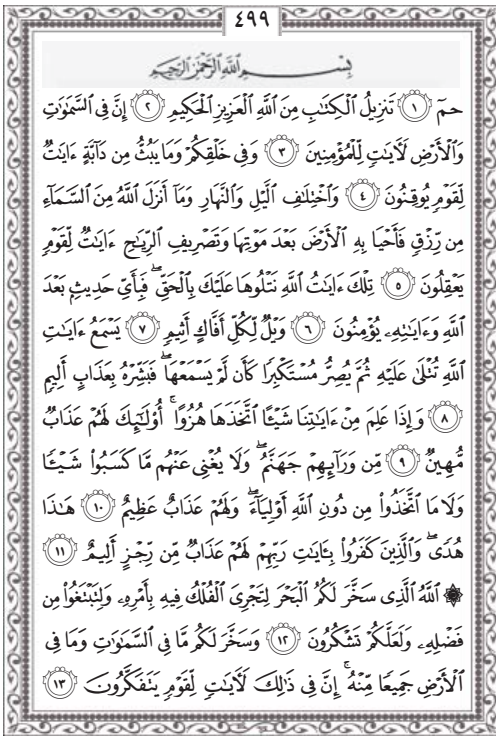 ٤٩٩
بِسْمِ ٱللَّهِ ٱلرَّحْمَٰنِ ٱلرَّحِيمِ
حمٓ ۝١ تَنزِيلُ ٱلْكِتَٰبِ مِنَ ٱللَّهِ ٱلْعَزِيزِ ٱلْحَكِيمِ ۝٢ إِنَّ فِى ٱلسَّمَٰوَٰتِ
وَٱلْأَرْضِ لَـَٔايَٰتٍ لِّلْمُؤْمِنِينَ ۝٣ وَفِى خَلْقِكُمْ وَمَا يَبُثُّ مِن دَآبَّةٍ ءَايَٰتٌ
لِّقَوْمٍ يُوقِنُونَ ۝٤ وَٱخْتِلَٰفِ ٱلَّيْلِ وَٱلنَّهَارِ وَمَآ أَنزَلَ ٱللَّهُ مِنَ ٱلسَّمَآءِ
مِن رِّزْقٍ فَأَحْيَا بِهِ ٱلْأَرْضَ بَعْدَ مَوْتِهَا وَتَصْرِيفِ ٱلرِّيَٰحِ ءَايَٰتٌ لِّقَوْمٍ
يَعْقِلُونَ ۝٥ تِلْكَ ءَايَٰتُ ٱللَّهِ نَتْلُوهَا عَلَيْكَ بِٱلْحَقِّ ۖ فَبِأَىِّ حَدِيثٍۭ بَعْدَ
ٱللَّهِ وَءَايَٰتِهِۦ يُؤْمِنُونَ ۝٦ وَيْلٌ لِّكُلِّ أَفَّاكٍ أَثِيمٍ ۝٧ يَسْمَعُ ءَايَٰتِ
ٱللَّهِ تُتْلَىٰ عَلَيْهِ ثُمَّ يُصِرُّ مُسْتَكْبِرًا كَأَن لَّمْ يَسْمَعْهَا ۖ فَبَشِّرْهُ بِعَذَابٍ أَلِيمٍ
۝٨ وَإِذَا عَلِمَ مِنْ ءَايَٰتِنَا شَيْـًٔا ٱتَّخَذَهَا هُزُوًا ۚ أُو۟لَٰٓئِكَ لَهُمْ عَذَابٌ
مُّهِينٌ ۝٩ مِّن وَرَآئِهِمْ جَهَنَّمُ ۖ وَلَا يُغْنِى عَنْهُم مَّا كَسَبُوا۟ شَيْـًٔا
وَلَا مَا ٱتَّخَذُوا۟ مِن دُونِ ٱللَّهِ أَوْلِيَآءَ ۖ وَلَهُمْ عَذَابٌ عَظِيمٌ ۝١٠ هَٰذَا
هُدًى ۖ وَٱلَّذِينَ كَفَرُوا۟ بِـَٔايَٰتِ رَبِّهِمْ لَهُمْ عَذَابٌ مِّن رِّجْزٍ أَلِيمٌ ۝١١
۞ ٱللَّهُ ٱلَّذِى سَخَّرَ لَكُمُ ٱلْبَحْرَ لِتَجْرِىَ ٱلْفُلْكُ فِيهِ بِأَمْرِهِۦ وَلِتَبْتَغُوا۟ مِن
فَضْلِهِۦ وَلَعَلَّكُمْ تَشْكُرُونَ ۝١٢ وَسَخَّرَ لَكُم مَّا فِى ٱلسَّمَٰوَٰتِ وَمَا فِى
ٱلْأَرْضِ جَمِيعًا مِّنْهُ ۚ إِنَّ فِى ذَٰلِكَ لَـَٔايَٰتٍ لِّقَوْمٍ يَتَفَكَّرُونَ ۝١٣